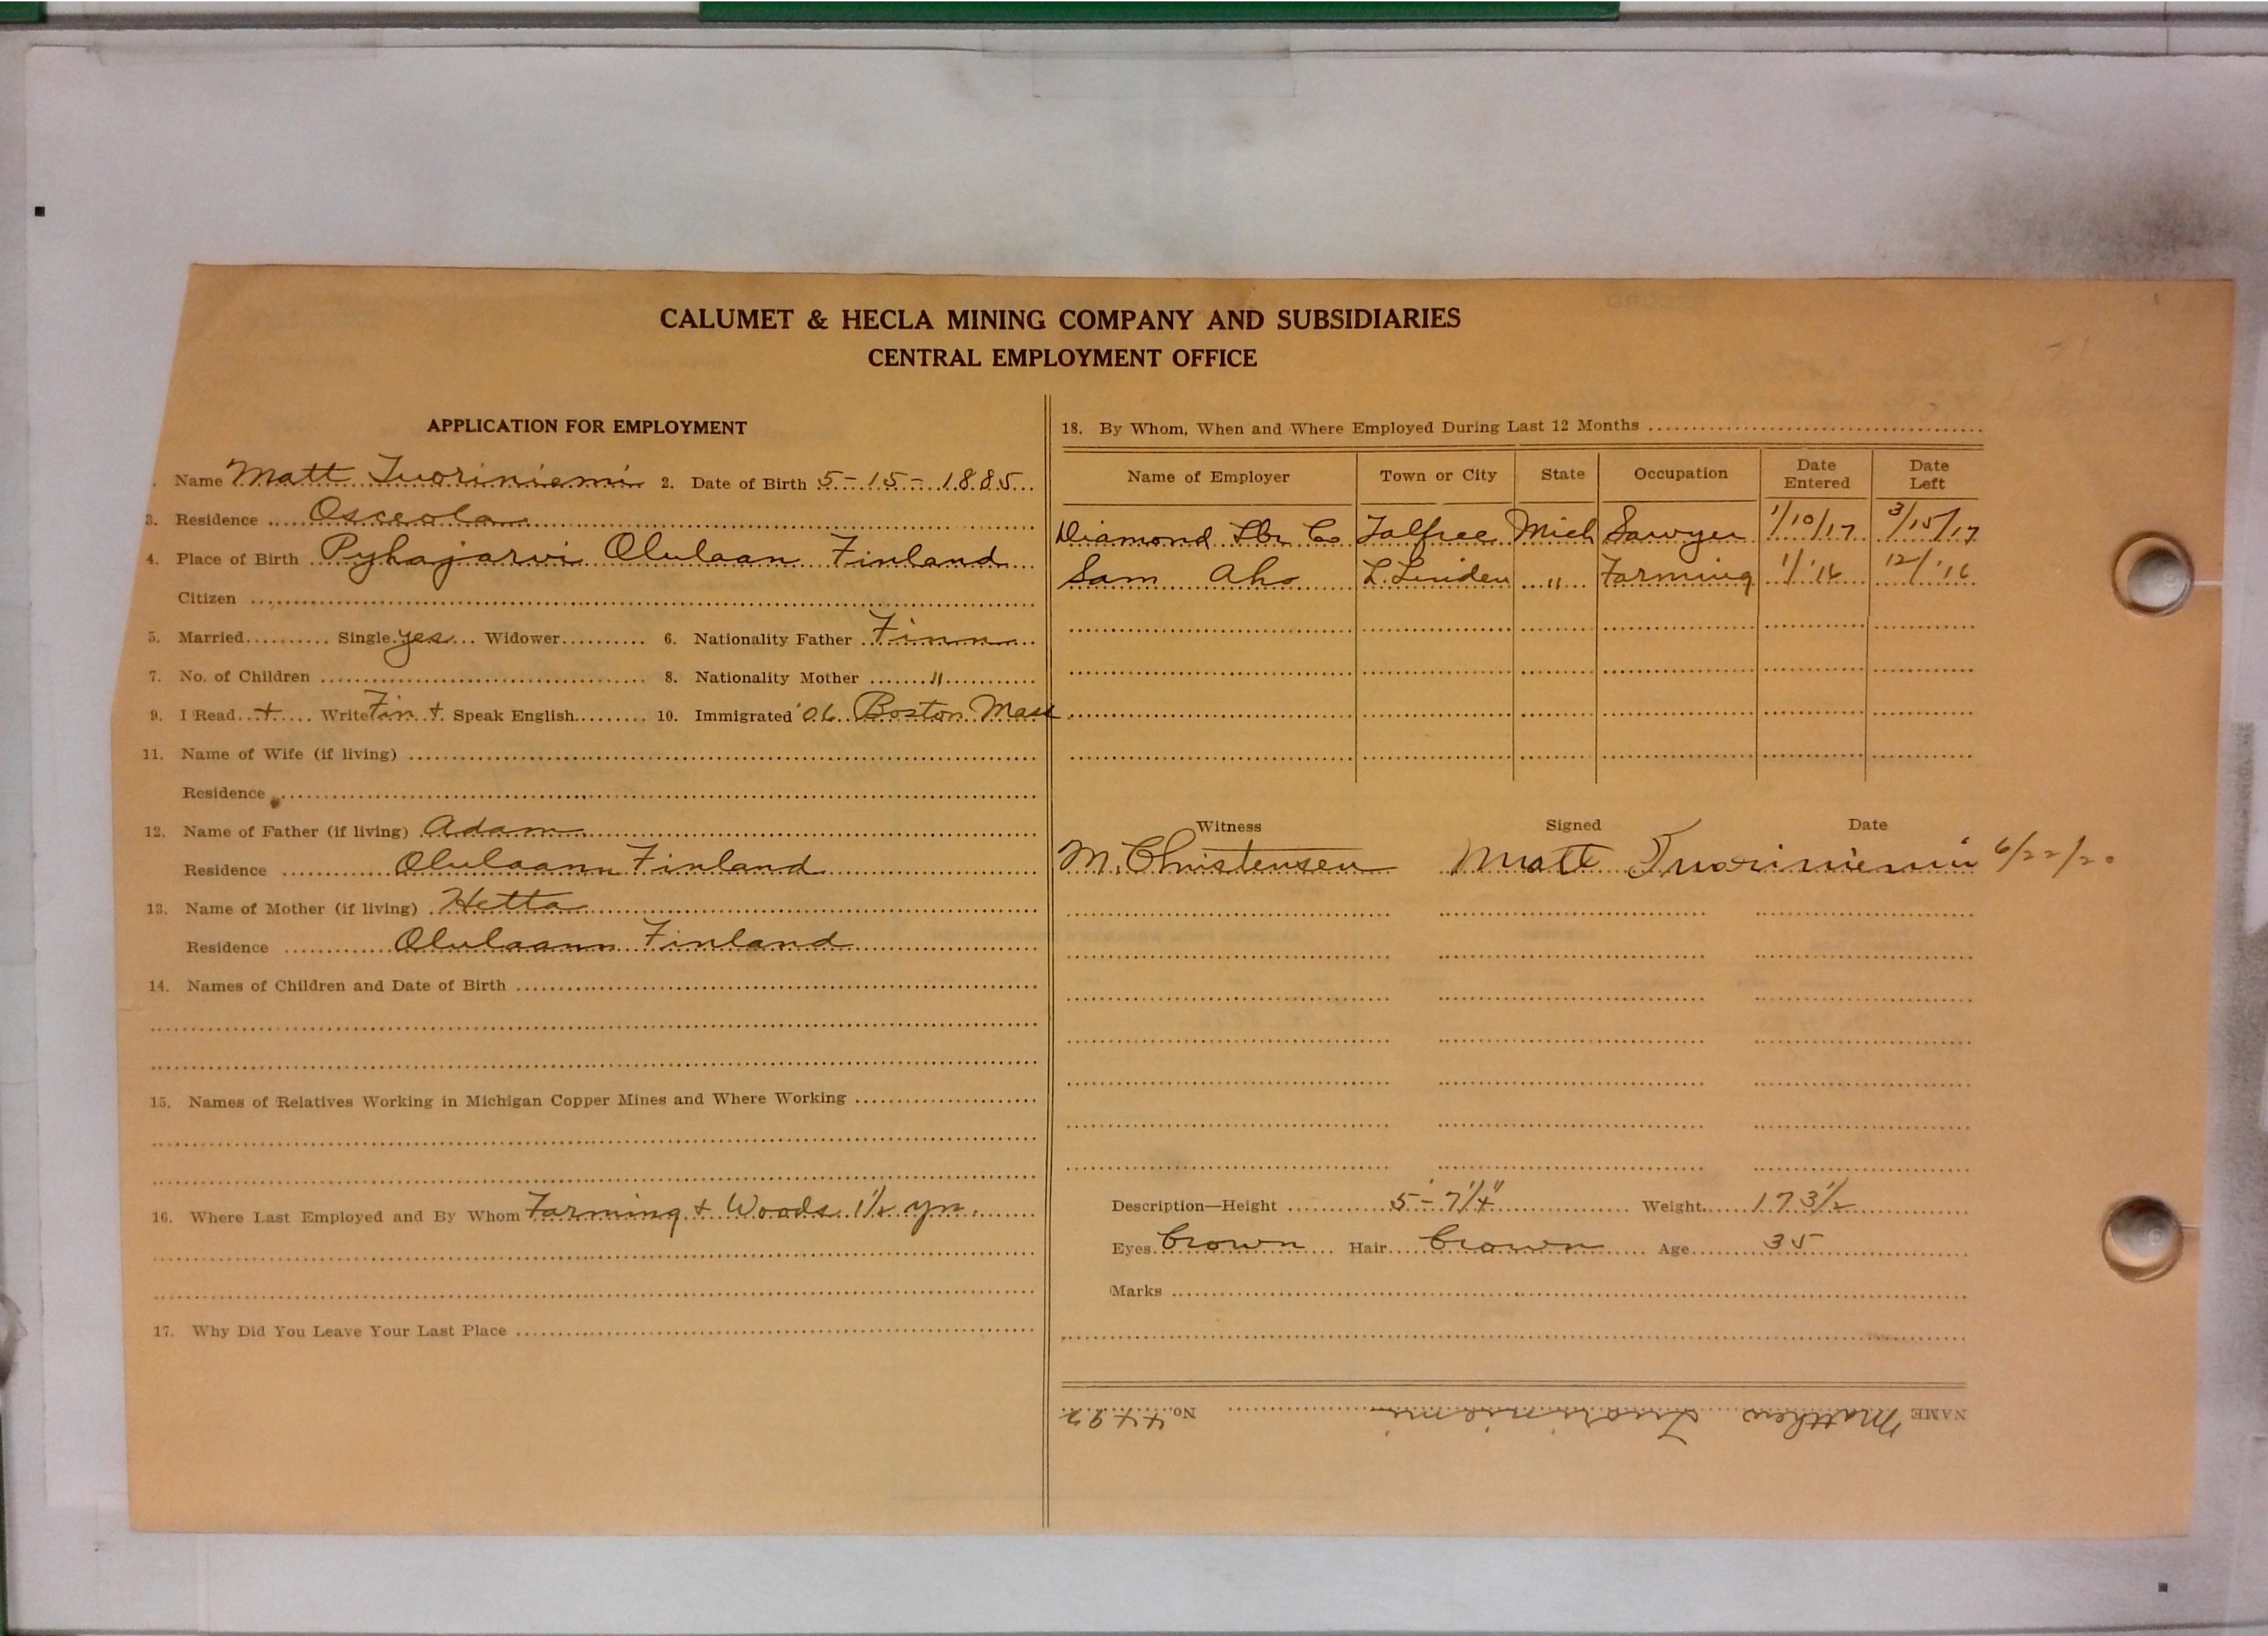 CALUMET & HECLA MINING COMPANY AND SUBSIDIARIES
CENTRAL EMPLOYMENT OFFICE
APPLICATION FOR EMPLOYMENT
. Name Matt Tuoriniemi 2. Date of Birth 5-15-1885
3. Residence Osceola
4. Place of Birth Pyhajarvi Olulaan Finland
Citizen
5. Married Single yes Widower 6. Nationality Father Finn
7. No. of Children 8. Nationality Mother "
9. I Read + Write Fin + Speak English 10. Immigrated '06 Boston Mass
11. Name of Wife (if living)
Residence
12. Name of Father (if living) Adam
Residence Olulaann Finland
13. Name of Mother (if living) Hetta
Residence Olulaann Finland
14. Names of Children and Date of Birth
15. Names of Relatives Working in Michigan Copper Mines and Where Working
16. Where Last Employed and By Whom Farming + Woods
17. Why Did You Leave Your Last Place
18. By Whom, When and Where Employed During Last 12 Months
Name of Employer Town or City State Occupation Date Entered Date Left
Diamond Lbr Co Talfree Mich Sawyer 1/10/17 3/15/17
Sam Aho L. Linden " Farming 1/'16 12/'16
Witness Signed Date
M. Christensen Matt Tuoriniemi 6/22/20
Description—Height 5'-7 1/4" Weight 173 1/2
Eyes brown Hair brown Age 35
Marks
NAME Matthew Tuoriniemi No. 4492